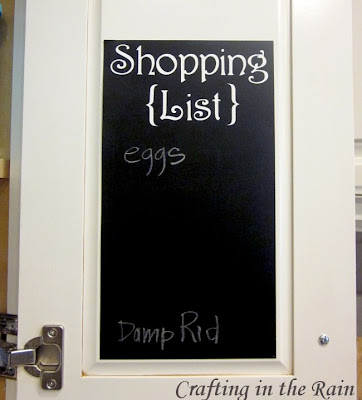 Shopping
{List}
eggs
Damp Rid
Crafting in the Rain